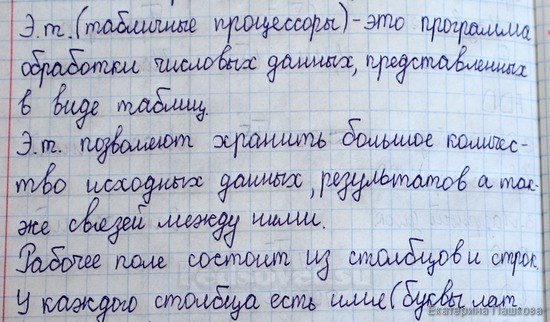 Э.т. (табличные процессоры) - это программа
обработки числовых данных, представленных
в виде таблиц.
Э.т. позволяют хранить большое количес-
тво исходных данных, результатов а так-
же связей между ними.
Рабочее поле состоит из столбцов и строк.
У каждого столбца есть имя (буквы лат.
Екатерина Пашкова